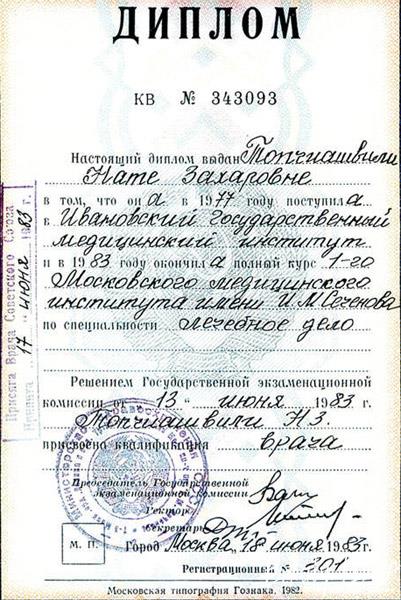 ДИПЛОМ
КВ № 343093
Настоящий диплом выдан Топчиашвили
Нате Захаровне
в том, что он а в 1977 году поступил а
в Ивановский Государственный
медицинский институт
и в 1983 году окончил а полный курс 1-го
Московского медицинского
института имени И.М.Сеченова
по специальности лечебное дело
Решением Государственной экзаменационной
комиссии от „13“ июня 1983 г.
Топчиашвили Н.З.
присвоена квалификация врача
Председатель Государственной
экзаменационной комиссии
Ректор
Секретарь
М. П.
Город Москва, 18 июня 1983 г.
Регистрационный № 201
Московская типография Гознака. 1982.
Присяга Врача Советского Союза
Принята „17“ июня 1983 г.